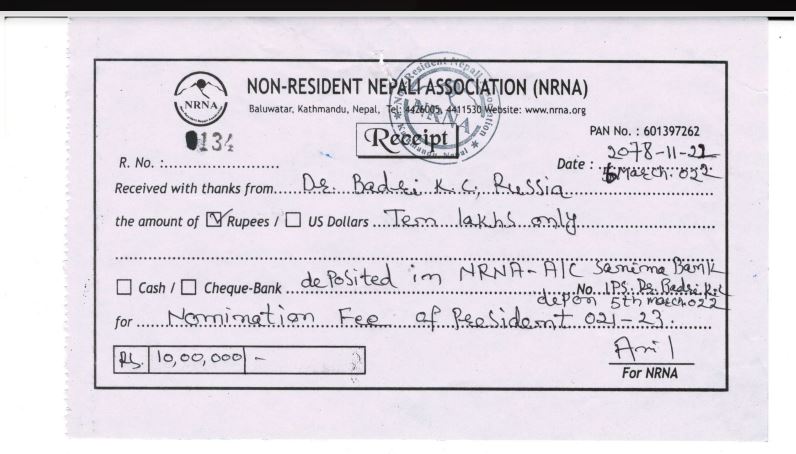 NRNA
NON-RESIDENT NEPALI ASSOCIATION (NRNA)
Baluwatar, Kathmandu, Nepal, Tel: 4426005, 4411530 Website: www.nrna.org
Receipt
PAN No. : 601397262
R. No. : 0134
Date : 2078-11-22
March. 022
Received with thanks from Dr. Badri K.C., Russia
the amount of ☑ Rupees / ☐ US Dollars Tem lakhs only
☐ Cash / ☐ Cheque-Bank deposited im NRNA-A/C Sanima Bank
No. IPS. Dr. Badri K.C
depon 5th March 022
for Nomimation Fee of President 021-23.
Rs. 10,00,000/-
For NRNA